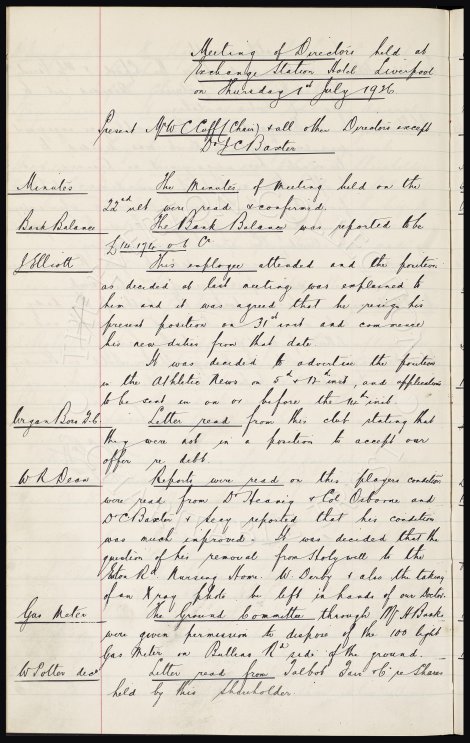 Meeting of Directors held at
Exchange Station Hotel Liverpool
on Thursday 1st July 1926
Present Mr W C Cuff (Chair) & all other Directors except
Dr J C Baxter
Minutes The Minutes of Meeting held on the
22nd ult were read & confirmed.
Bank Balance The Bank Balance was reported to be
£14,174 0 1 Cr
J Elliott This employee attended and the position
as decided at last meeting was explained to
him and it was agreed that he resign his
present position on 31st inst and commence
his new duties from that date.
It was decided to advertise the position
in the Athletic News on 5th & 12th inst, and applications
to be sent in on or before the 14th inst.
Wigan Boro F.C. Letter read from this club stating that
they were not in a position to accept our
offer re debt.
W R Dean Reports were read on this players condition
were read from Dr & Col Osborne and
Dr C Baxter & Secy reported that his condition
was much improved. It was decided that the
question of his removal from Holywell to the
Eaton Rd Nursing Home W. Derby & also the taking
of an X ray photo be left in hands of our Doctor.
Gas Meter The Ground Committee through Mr H Banks
were given permission to dispose of the 100 light
Gas Meter on Bullens Rd side of the ground.
W Solter decd Letter read from Talbot & Co re Shares
held by this shareholder.